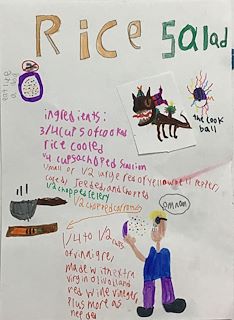 Rice Salad
the look
ball
ingredients:
3/4 cups of cooked
rice cooled
1/4 cups chopped scallion
small or 1/2 large red or yellow bell pepper,
cored, seeded, and chopped
1/2 chopped celery
1/2 chopped carrots
om nom
1/4 to 1/2 cups
of vinaigre,
made with extra
virgin olive oil and
red wine vinegar,
plus more as
needed